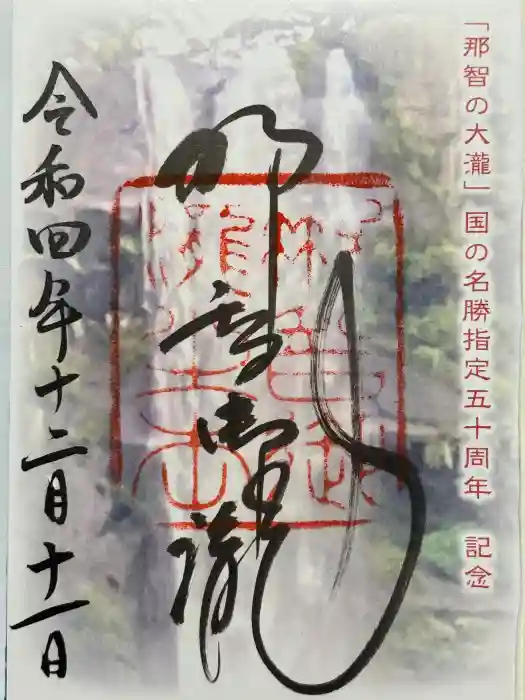 「那智の大瀧」国の名勝指定五十周年 記念
那智御瀧
令和四年十二月十一日